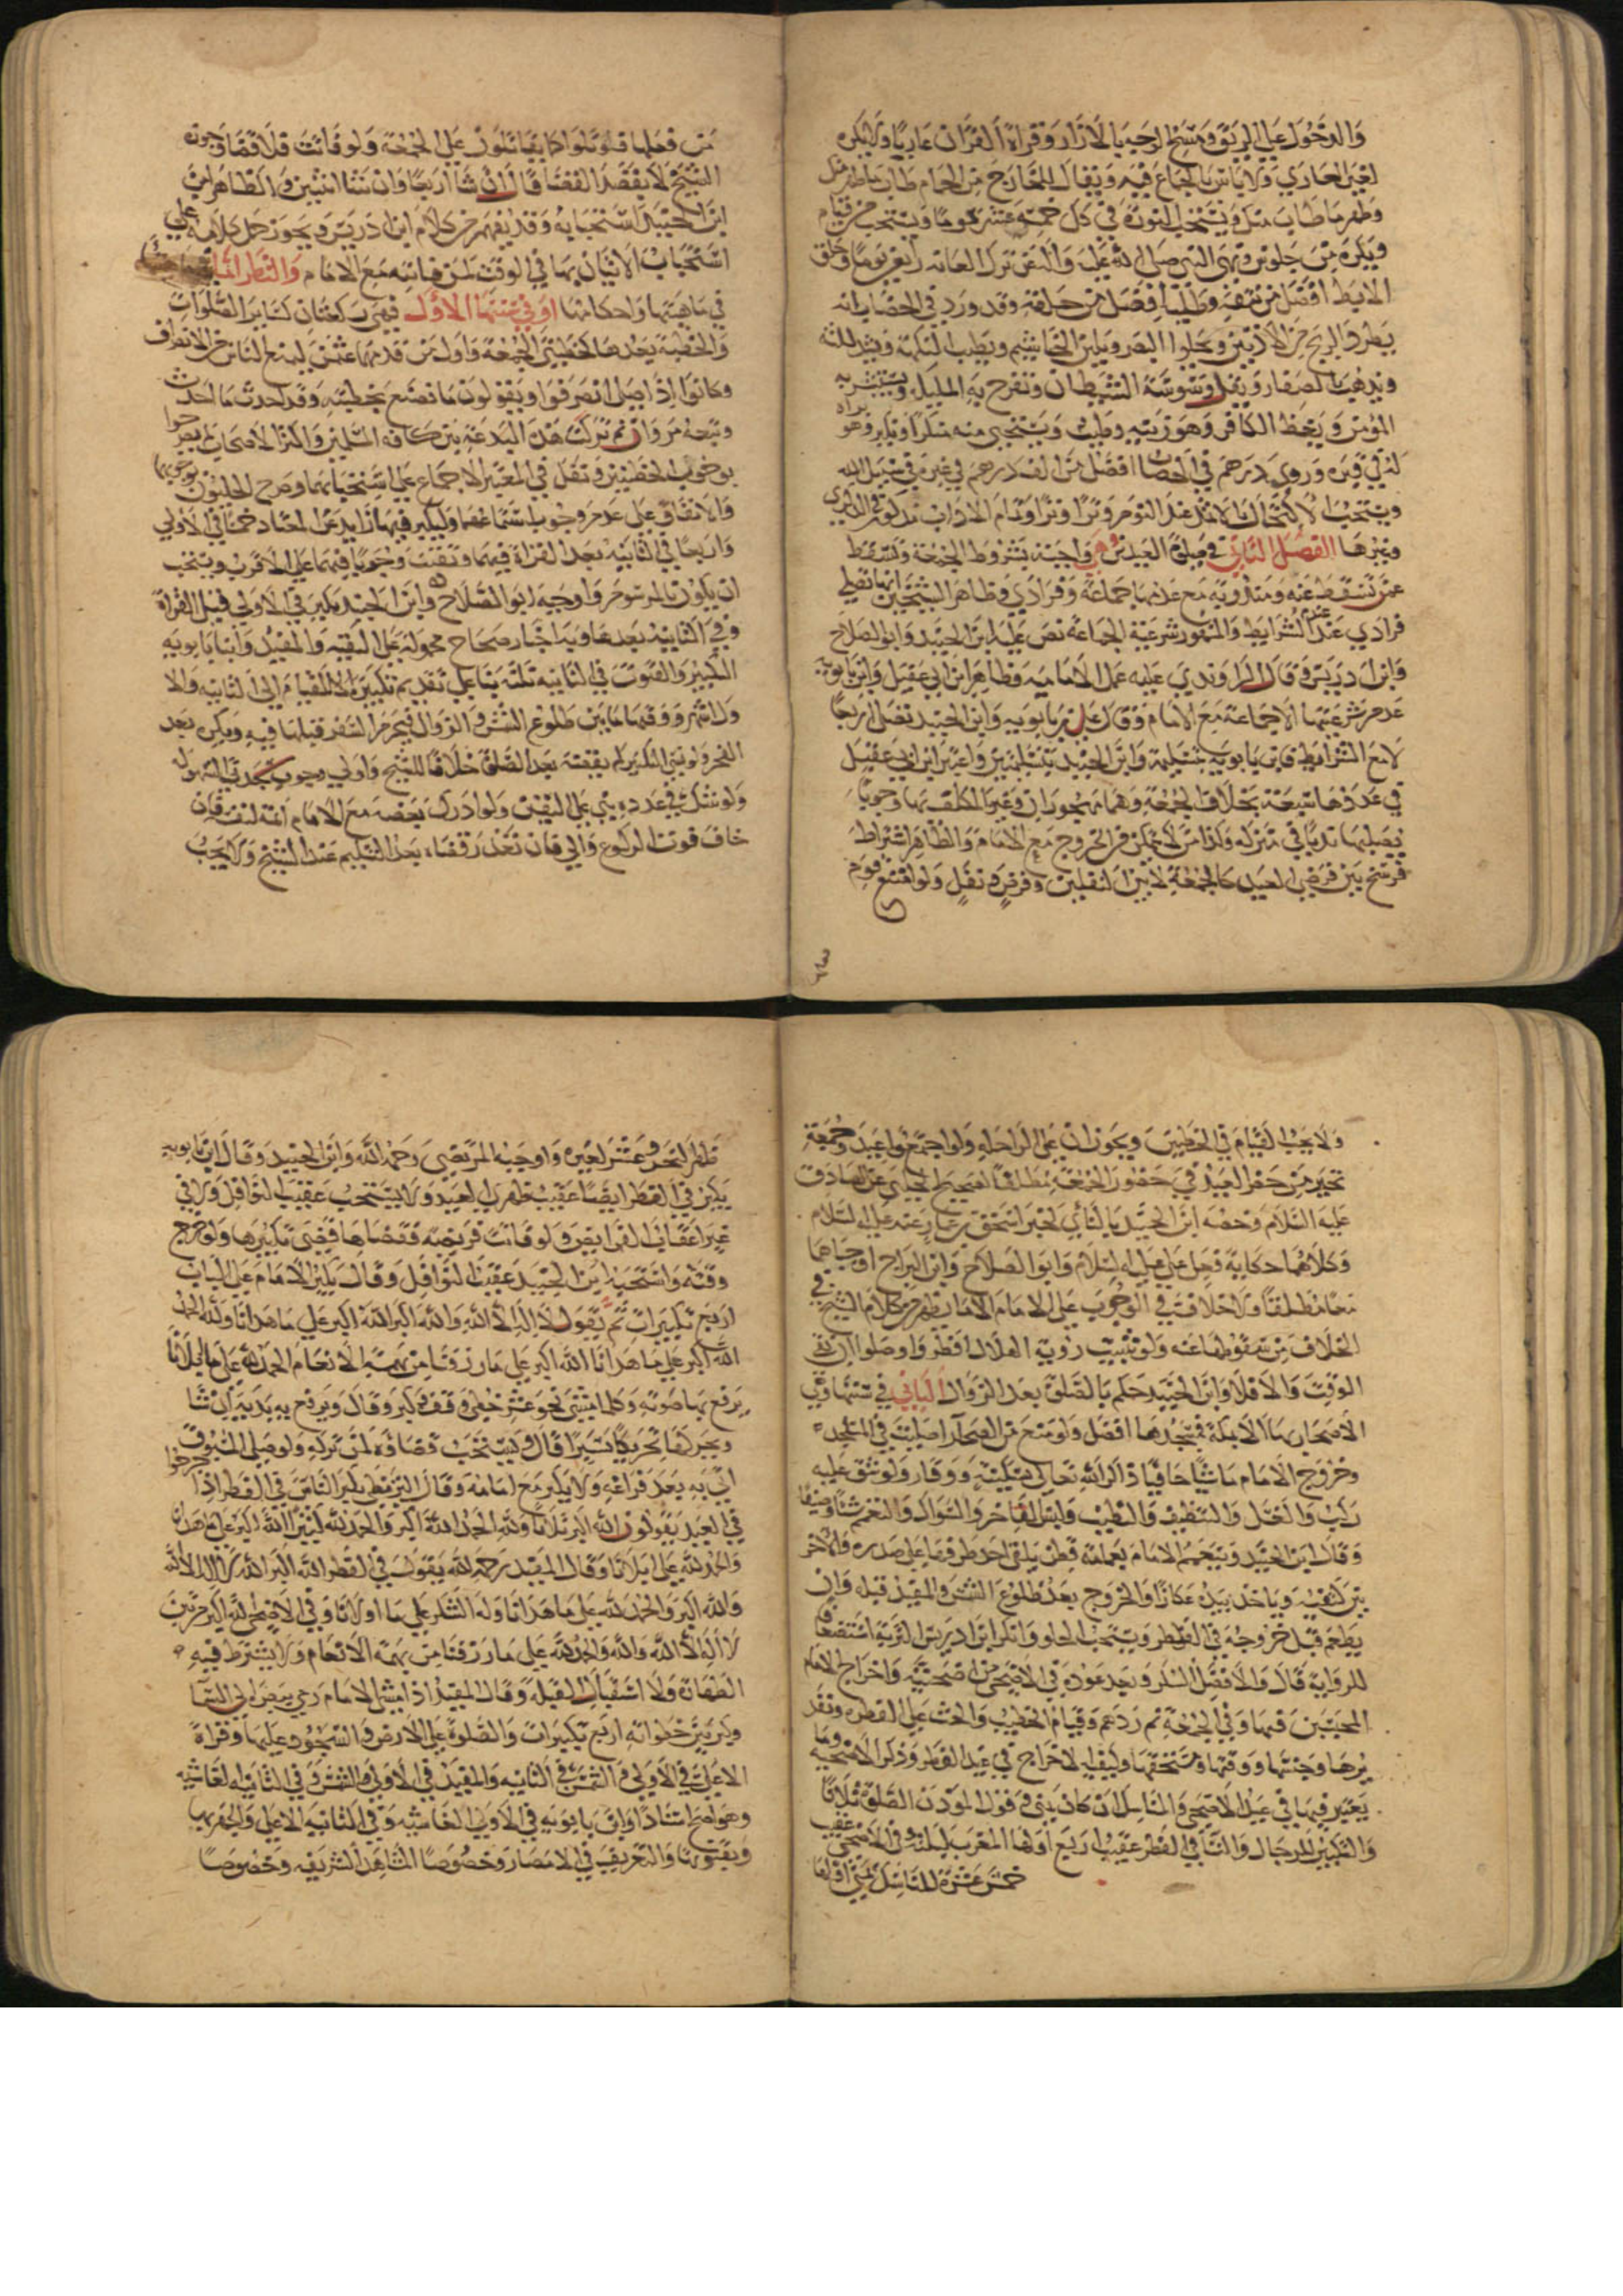 والدخول على الريق ومسح الوجه بالازار وقراة القران عاريا ولا يكره
لغير العاري ولا باس بالجماع فيه ويقال للخارج من الحمام طاب ما طهر منك
وطهر ما طاب منك ويستحب النورة في كل خمسة عشر يوما ويستحب من قيام
ويكره من جلوس ونهى النبي صلى الله عليه واله عن ترك العانة اربعين يوما وحلق
الابط افضل من نتفه وطليه افضل من حلقه وقد ورد في الخضاب انه
يطرد الريح من الاذنين ويجلوا البصر ويلين الخياشيم ويطيب النكهة ويشد اللثة
ويذهب بالصفار ويقل وسوسة الشيطان وتفرح به المليكة ويستبشر به
المؤمن ويغيظ الكافر وهو زينه وطيب ويستحيى منه منكرا ونكير وهو براه
له في قبره وروي درهم في الخضاب افضل من الف درهم في غيره في سبيل الله
ويستحب الاكتحال بالاثمد عند النوم وترا وترا وتمام الاداب مذكور في الذكرى
وغيرها الفصل الثاني في صلوة العيدين وهي واجبة بشروط الجمعة وتسقط
عمن تسقط عنه ومندوبة مع عدمها جماعة وفرادي وظاهر الشيخين انها تصلى
فرادي عند عدم الشرايط والمشهور شرعية الجماعة نص عليه ابن الجنيد وابو الصلاح
وابن ادريس وقال الراوندي عليه عمل الامامية وظاهر ابن ابي عقيل وابن بابويه
عدم شرعيتها الا جماعة مع الامام وقال علي بن بابويه وابن الجنيد تصلى اربعا
لامع الشرايط فابن بابويه بتسليمة وابن الجنيد بتسليمتين واعتبر ابن ابي عقيل
في عددها سبعة بخلاف الجمعة وهما مهجوران وغير المكلف بها وجوبا
يصليها ندبا في منزله وكذا من لا يتمكن من الخروج مع الامام والظاهر اشتراط
فرسخ بين فرضي العيد كالجمعة لا بين النفلين وفرض ونفل ولو امتنع قوم
من فعلها قوتلوا كما يقاتلون على الجمعة ولو فاتت فلا قضاء وجوزه
الشيخ لا بقصد القضا قال ان شا اربعا وان شا اثنين والظاهر من
ابن الجنيد استحبابه وقد يفهم من كلام ابن ادريس ويجوز حمل كلامه على
استحباب الاتيان بها في الوقت لمن فاتته مع الامام والنظر
في ماهيتها واحكامها او في سننها الاول فهي ركعتان كساير الصلوات
والخطبة بعدها كخطبتي الجمعة واول من قدمها عثمن ليمنع الناس من الانصراف
وكانوا اذا صلى انصرفوا ويقولون ما نصنع بخطبته وقد احدث ما احدث
وتبعه مروان ثم تركت هذه البدعة بين كافة المسلمين واكثر الاصحاب لم يصرحوا
بوجوب الخطبتين ونقل في المعتبر الاجماع على استحبابهما وصرح الحليون بوجوبها
والاتفاق على عدم وجوب استماعهما وليكبر فيها زايدا عن المعتاد خمسا في الاولى
واربعا في الثانية بعد القراة فيهما وتقنت وجوبا فيهما على الاقرب ويستحب
ان يكون بالمرسوم واوجبه ابو الصلاح وابن الجنيد يكبر في الاولى قبل القراة
وفي الثانية بعدها وبه اخبار صحاح محمولة على التقية والمفيد وابنا بابويه
التكبير والقنوت في الثانية ثلثة بنا على تقديم تكبيرة للقيام الى الثانية والا
ول اشهر ووقتها ما بين طلوع الشمس والزوال فيحرم السفر قبلها فيه ويكره بعد
الفجر ولو نسي التكبير لم يقضه بعد الصلوة خلافا للشيخ واولى وجوب سجدتي السهو له
ولو شك في عدده بنى على اليقين ولو ادرك بعضه مع الامام اتمه لنفسه فان
خاف فوت الركوع والى فان تعذر قضاه بعد التسليم عند الشيخ ولا يجب
ولا يجب القيام في الخطبتين ويجوزان على الراحلة ولو اجتمع عيد وجمعة
تخير من حضر العيد في حضور الجمعة مطلقا لصحيح الحلبي عن الصادق
عليه السلام وخصه ابن الجنيد بالنائي لخبر اسحق بن عمار عنه عليه السلام
وكلاهما حكاية فعل علي عليه السلام وابو الصلاح وابن البراج اوجباهما
معا مطلقا ولا خلاف في الوجوب على الامام الا ما يظهر من كلام الشيخ في
الخلاف من سقوطها عنه ولو ثبت روية الهلال افطروا وصلوا ان بقي
الوقت والا فلا وابن الجنيد حكم بالصلوة بعد الزوال الثاني في سننها وهي
الاصحار بها الا بمكة فمسجدها افضل ولو منع من الصحرا صليت في المسجد
وخروج الامام ماشيا حافيا ذاكرا لله تعالى بسكينة ووقار ولو شق عليه
ركب والغسل والتنظيف والتطيب ولبس الفاخر والسواك والتعمم شتا وصيفا
وقال ابن الجنيد ويتعمم الامام بعمامة قطن يلقى احد طرفيها على صدره والاخر
بين كتفيه وياخذ بيده عكازا والخروج بعد طلوع الشمس والمفيد قبله وان
يطعم قبل خروجه في الفطر ويستحب الحلو وانكر ابن ادريس التربة استضعافا
للرواية قال والافضل السكر وبعد عوده في الاضحى من اضحيته واخراج الامام
المحبسين فيها وفي الجمعة ثم ردهم وقيام الخطيب والحث على الفطرة وقد
رها وجنسها ووقتها ومستحقها وكيفية الاخراج في عيد الفطر وذكر الاضحية وما
يعتبر فيها في عيد الاضحى والمناسك ان كان بمنى وقول المؤذن الصلوة ثلاثا
والتكبير للرجال والنسا في الفطر عقيب اربع اولها المغرب ليلته وفي الاضحى عقيب
خمس عشرة للناسك بمنى اولها
ظهر النحر وعشر لغيره واوجبه المرتضى رحمه الله وابن الجنيد وقال ابن بابويه
يكبر في الفطر ايضا عقيب ظهري العيد ولا يستحب عقيب النوافل ولا في
غير اعقاب الفرايض ولو فاتت فريضة فقضاها قضى تكبيرها ولو خرج
وقته واستحبه ابن الجنيد عقيب النوافل وقال يكبر الامام على الباب
اربع تكبيرات ثم يقول لا اله الا الله والله اكبر الله اكبر على ما هدانا ولله الحمد
الله اكبر على ما هدانا الله اكبر على ما رزقنا من بهيمة الانعام الحمد لله على ما ابلانا
يرفع بها صوته وكلما مشى نحو عشر خطى وقف وكبر وقال ويرفع به يديه ان شا
ويحركها تحريكا يسيرا قال ويستحب قضاؤه لمن تركه ولو صلى المسبوق
اتى به بعد فراغه ولا يكبر مع امامه وقال البزنطي يكبر الناس في الفطر اذا خرجوا
في العيد يقولون الله اكبر ثلاثا ولله الحمد الله اكبر والحمد لله كثيرا الله اكبر على ما هدانا
والحمد لله على ما ابلانا وقال المفيد رحمه الله يقول في الفطر الله اكبر الله اكبر لا اله الا الله
والله اكبر والحمد لله على ما هدانا وله الشكر على ما اولانا وفي الاضحى الله اكبر مرتين
لا اله الا الله والله والحمد لله على ما رزقنا من بهيمة الانعام ولا يشترط فيه
الطهارة ولا استقبال القبلة وقال المفيد اذا مشى الامام رمي ببصره الى السما
وكبر بين خطواته اربع تكبيرات والصلوة على الارض والسجود عليها وقراة
الاعلى في الاولى والشمس في الثانية والمفيد في الاولى والشمس وفي الثانية الغاشية
وهو اصح اسنادا وابن بابويه في الاولى الغاشية وفي الثانية الاعلى والجهر بها
وبقنوتها والتعريف في الامصار وخصوصا المشاهد الشريفة وخصوصا